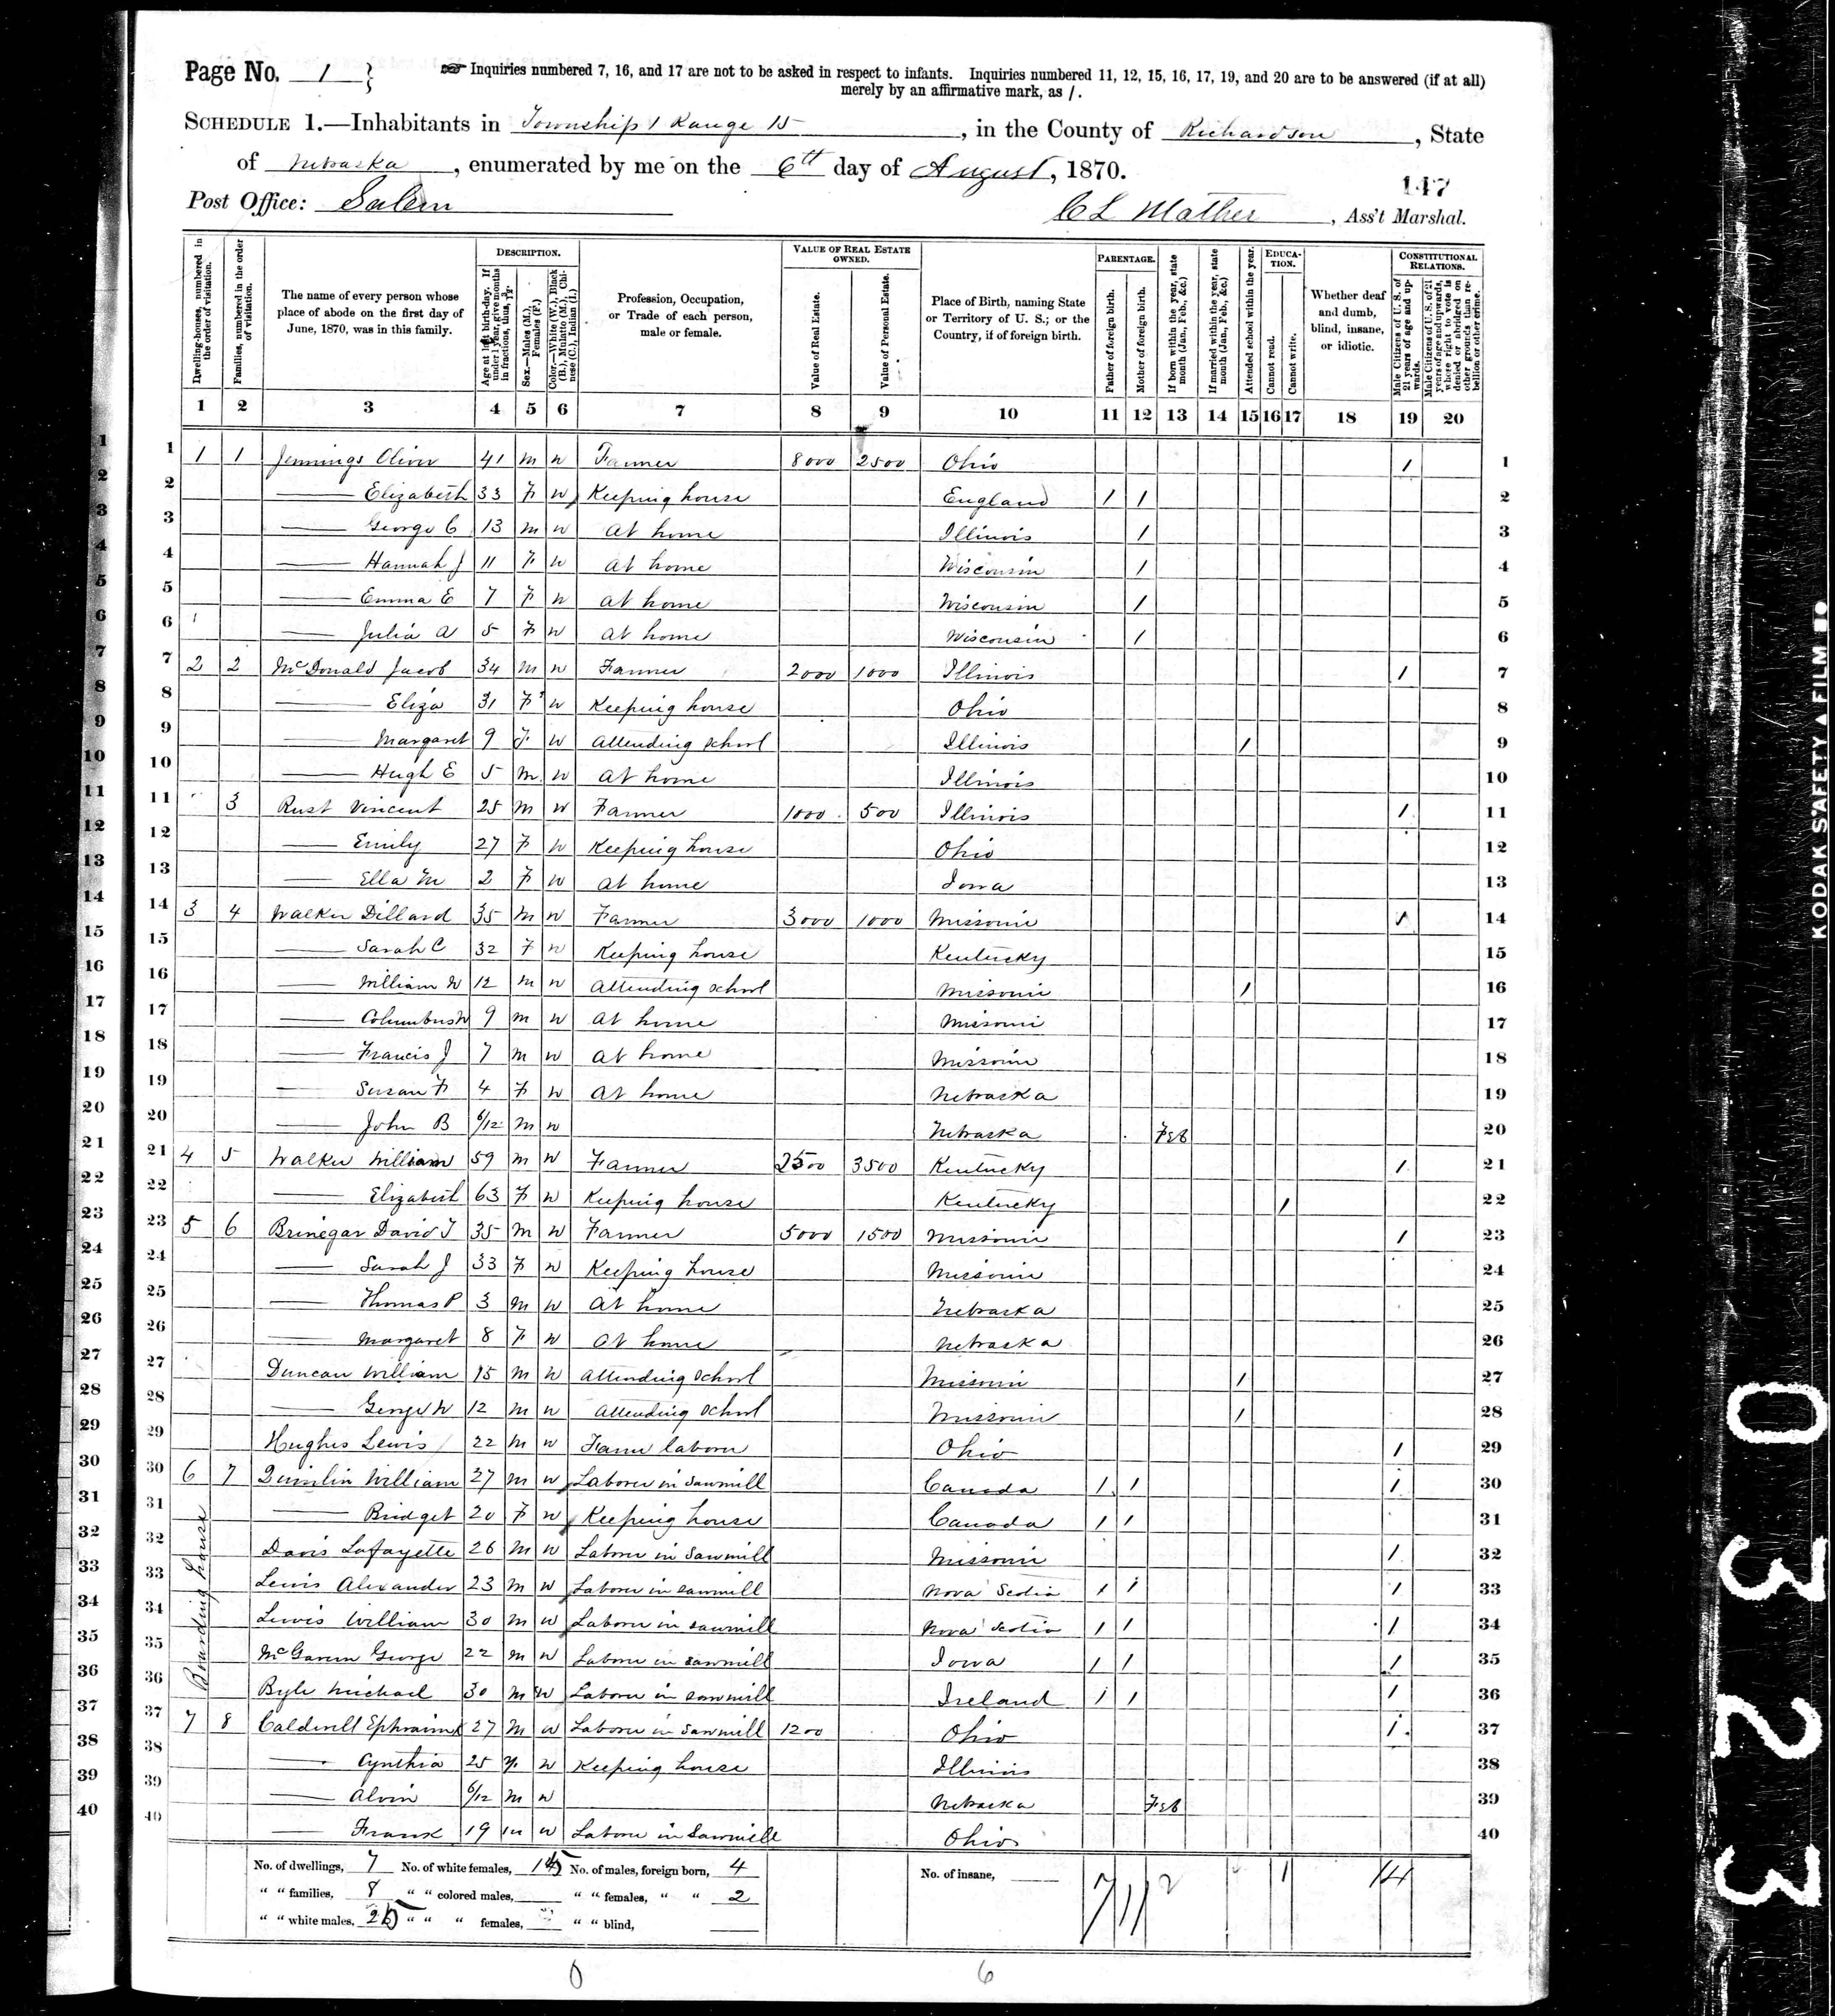 Page No. 1 } ☞ Inquiries numbered 7, 16, and 17 are not to be asked in respect to infants. Inquiries numbered 11, 12, 15, 16, 17, 19, and 20 are to be answered (if at all)
merely by an affirmative mark, as /.
SCHEDULE 1.—Inhabitants in Township 1 Range 15, in the County of Richardson, State
of Nebraska, enumerated by me on the 6th day of August, 1870.
147
Post Office: Salem C L Mather, Ass't Marshal.
Dwelling-houses, numbered in the order of visitation.
Families, numbered in the order of visitation.
The name of every person whose place of abode on the first day of June, 1870, was in this family.
DESCRIPTION.
Age at last birth-day. If under 1 year, give months in fractions, thus, 3/12.
Sex.—Males (M.), Females (F.)
Color.—White (W.), Black (B.), Mulatto (M.), Chinese (C.), Indian (I.)
Profession, Occupation, or Trade of each person, male or female.
VALUE OF REAL ESTATE OWNED.
Value of Real Estate.
Value of Personal Estate.
Place of Birth, naming State or Territory of U. S.; or the Country, if of foreign birth.
PARENTAGE.
Father of foreign birth.
Mother of foreign birth.
If born within the year, state month (Jan., Feb., &c.)
If married within the year, state month (Jan., Feb., &c.)
Attended school within the year.
EDUCATION.
Cannot read.
Cannot write.
Whether deaf and dumb, blind, insane, or idiotic.
CONSTITUTIONAL RELATIONS.
Male Citizens of U. S. of 21 years of age and upwards.
Male Citizens of U. S. of 21 years of age and upwards, whose right to vote is denied or abridged on other grounds than rebellion or other crime.
1 2 3 4 5 6 7 8 9 10 11 12 13 14 15 16 17 18 19 20
1 1 1 Jennings Oliver 41 M W Farmer 8000 2500 Ohio / 1
2 — Elizabeth 33 F W Keeping house England / / 2
3 — George C 13 M W at home Illinois / 3
4 — Hannah J 11 F W at home Wisconsin / 4
5 — Emma E 7 F W at home Wisconsin / 5
6 — Julia A 5 F W at home Wisconsin / 6
7 2 2 McDonald Jacob 34 M W Farmer 2000 1000 Illinois / 7
8 — Eliza 31 F W Keeping house Ohio 8
9 — Margaret 9 F W Attending school Illinois / 9
10 — Hugh E 5 M W at home Illinois 10
11 3 Rust Vincent 25 M W Farmer 1000 500 Illinois / 11
12 — Emily 27 F W Keeping house Ohio 12
13 — Ella M 2 F W at home Iowa 13
14 3 4 Walker Dillard 35 M W Farmer 3000 1000 Missouri / 14
15 — Sarah C 32 F W Keeping house Kentucky 15
16 — William W 12 M W Attending school Missouri / 16
17 — Columbus W 9 M W at home Missouri 17
18 — Francis J 7 M W at home Missouri 18
19 — Susan F 4 F W at home Nebraska 19
20 — John B 6/12 M W Nebraska Feb 20
21 4 5 Walker William 59 M W Farmer 2500 3500 Kentucky / 21
22 — Elizabeth 63 F W Keeping house Kentucky / 22
23 5 6 Brinegar David T 35 M W Farmer 5000 1500 Missouri / 23
24 — Sarah J 33 F W Keeping house Missouri 24
25 — Thomas P 3 M W at home Nebraska 25
26 — Margaret 8 F W at home Nebraska 26
27 Duncan William 15 M W Attending school Missouri / 27
28 — George W 12 M W Attending school Missouri / 28
29 Hughes Lewis 22 M W Farm laborer Ohio / 29
30 6 7 Quinlin William 27 M W Laborer in sawmill Canada / / / 30
31 — Bridget 20 F W Keeping house Canada / / 31
Boarding house
32 Davis Lafayette 26 M W Laborer in sawmill Missouri / 32
33 Lewis Alexander 23 M W Laborer in sawmill Nova Scotia / / / 33
34 Lewis William 30 M W Laborer in sawmill Nova Scotia / / / 34
35 McGavern George 22 M W Laborer in sawmill Iowa / / / 35
36 Byle Michael 30 M W Laborer in sawmill Ireland / / / 36
37 7 8 Caldwell Ephraim 27 M W Laborer in sawmill 1200 Ohio / 37
38 — Cynthia 25 F W Keeping house Illinois 38
39 — Alvin 6/12 M W Nebraska Feb 39
40 — Frank 19 M W Laborer in sawmill Ohio 40
No. of dwellings, 7 No. of white females, 15 No. of males, foreign born, 4 No. of insane, 7 11 2 1 14
" " families, 8 " " colored males, " " females, " " 2
" " white males, 25 " " " females, " " blind,
6
KODAK SAFETY FILM
0323